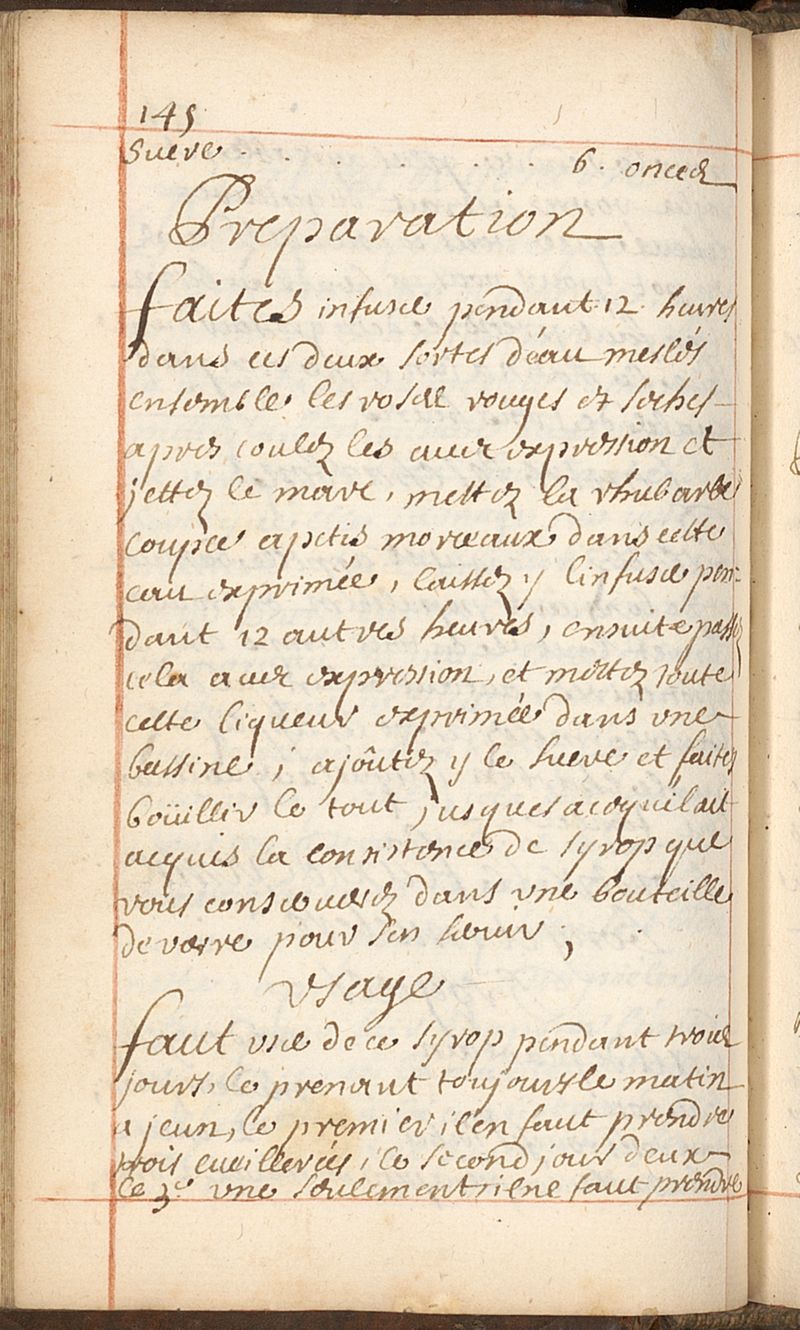 145
Sucre . . . . . . 6. onces
Preparation
faites infuser pendant 12 heures
dans ces deux sortes d'éau meslés
ensemble les roses rouges et seches
apres coulez les avec expression et
jettez le marc, mettez la rhubarbe
coupée apetis morceaux dans cette
eau exprimée, laissez y l'infuser pen-
dant 12 autres heures, ensuite passez
cela avec expression, et mettez toute
cette liqueur exprimée dans une
bassine ; ajoûtez y le sucre et faites
boüillir le tout, jusques acequ'il ait
acquis la consistence de syrop que
vous conserverez dans une bouteille
de verre pour s'en servir ;
Usage
faut user de ce syrop pendant trois
jours, le prenant toujours le matin
a jeun, le premier il en faut prendre
trois cueillerées, le second jour deux
le 3.e une seulement, il ne faut prendre